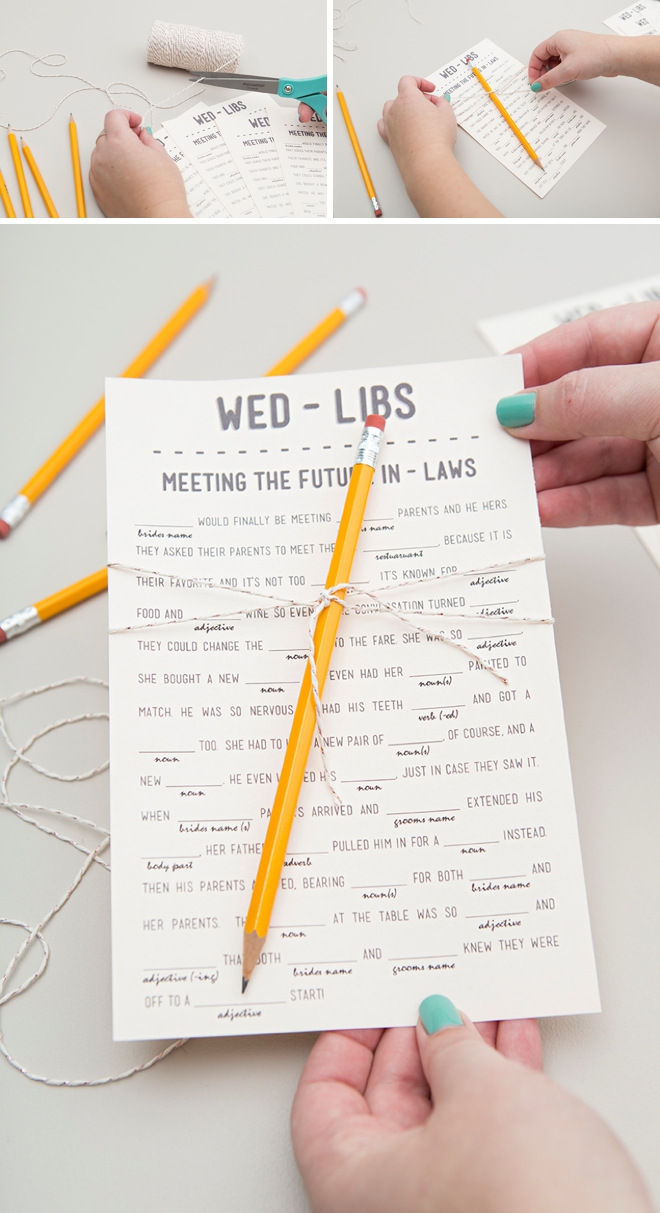 WED - LIBS
MEETING T
WED - LIBS
MEETING THE FUTURE IN - LAWS
WED - LIBS
MEETING THE FUTU IN - LAWS
WOULD FINALLY BE MEETING PARENTS AND HE HERS.
brides name s name
THEY ASKED THEIR PARENTS TO MEET THE , BECAUSE IT IS
restuaruant
THEIR FAVORITE AND IT'S NOT TOO . IT'S KNOWN FOR
adjective
FOOD AND WINE SO EVEN THE CONVERSATION TURNED
adjective adjective
THEY COULD CHANGE THE TO THE FARE. SHE WAS SO
noun adjective
SHE BOUGHT A NEW EVEN HAD HER PAINTED TO
noun noun(s)
MATCH. HE WAS SO NERVOUS HAD HIS TEETH AND GOT A
verb (-ed)
TOO. SHE HAD TO A NEW PAIR OF , OF COURSE, AND A
noun noun(s)
NEW . HE EVEN HIS , JUST IN CASE THEY SAW IT.
noun noun
WHEN PA S ARRIVED AND EXTENDED HIS
brides name (s) grooms name
, HER FATHE PULLED HIM IN FOR A INSTEAD.
body part adverb noun
THEN HIS PARENTS A ED, BEARING FOR BOTH AND
noun(s) brides name
HER PARENTS. TH AT THE TABLE WAS SO AND
noun adjective
THA BOTH AND KNEW THEY WERE
adjective (-ing) brides name grooms name
OFF TO A START!
adjective